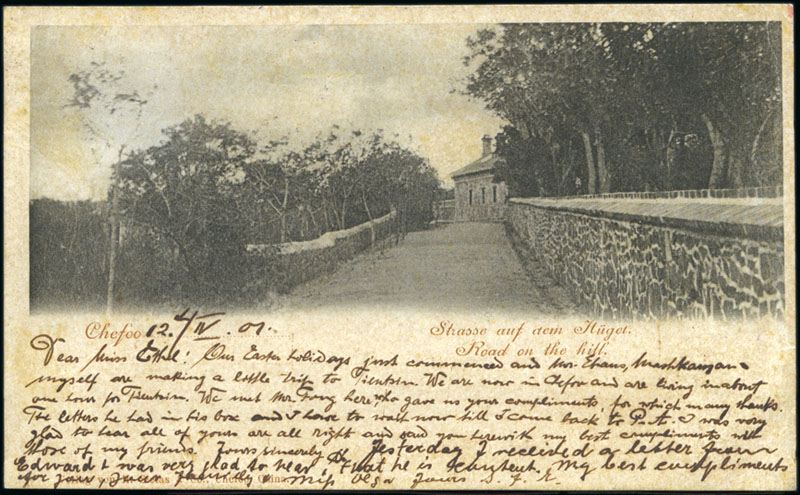 Chefoo 12. 4/IV. 01.
Strasse auf dem Hügel.
Road on the hill.
Dear Miss Ethel! Our Easter holidays just commenced and Mr. Evans, and
myself are making a little trip to Tientsin. We are now in Chefoo and are living in about
one hour for Tientsin. We met Mr. Fong here who gave us your compliments, for which many thanks.
The letters he had in his box and I have to wait now till I come back to P.A. I was very
glad to hear all of yours are all right and send you herewith my best compliments with
those of my friends. Yours sincerely Yesterday I received a letter from
Edward & was very glad to hear that he is content. My best compliments
for your family & Miss Olga Yours S. F. R.